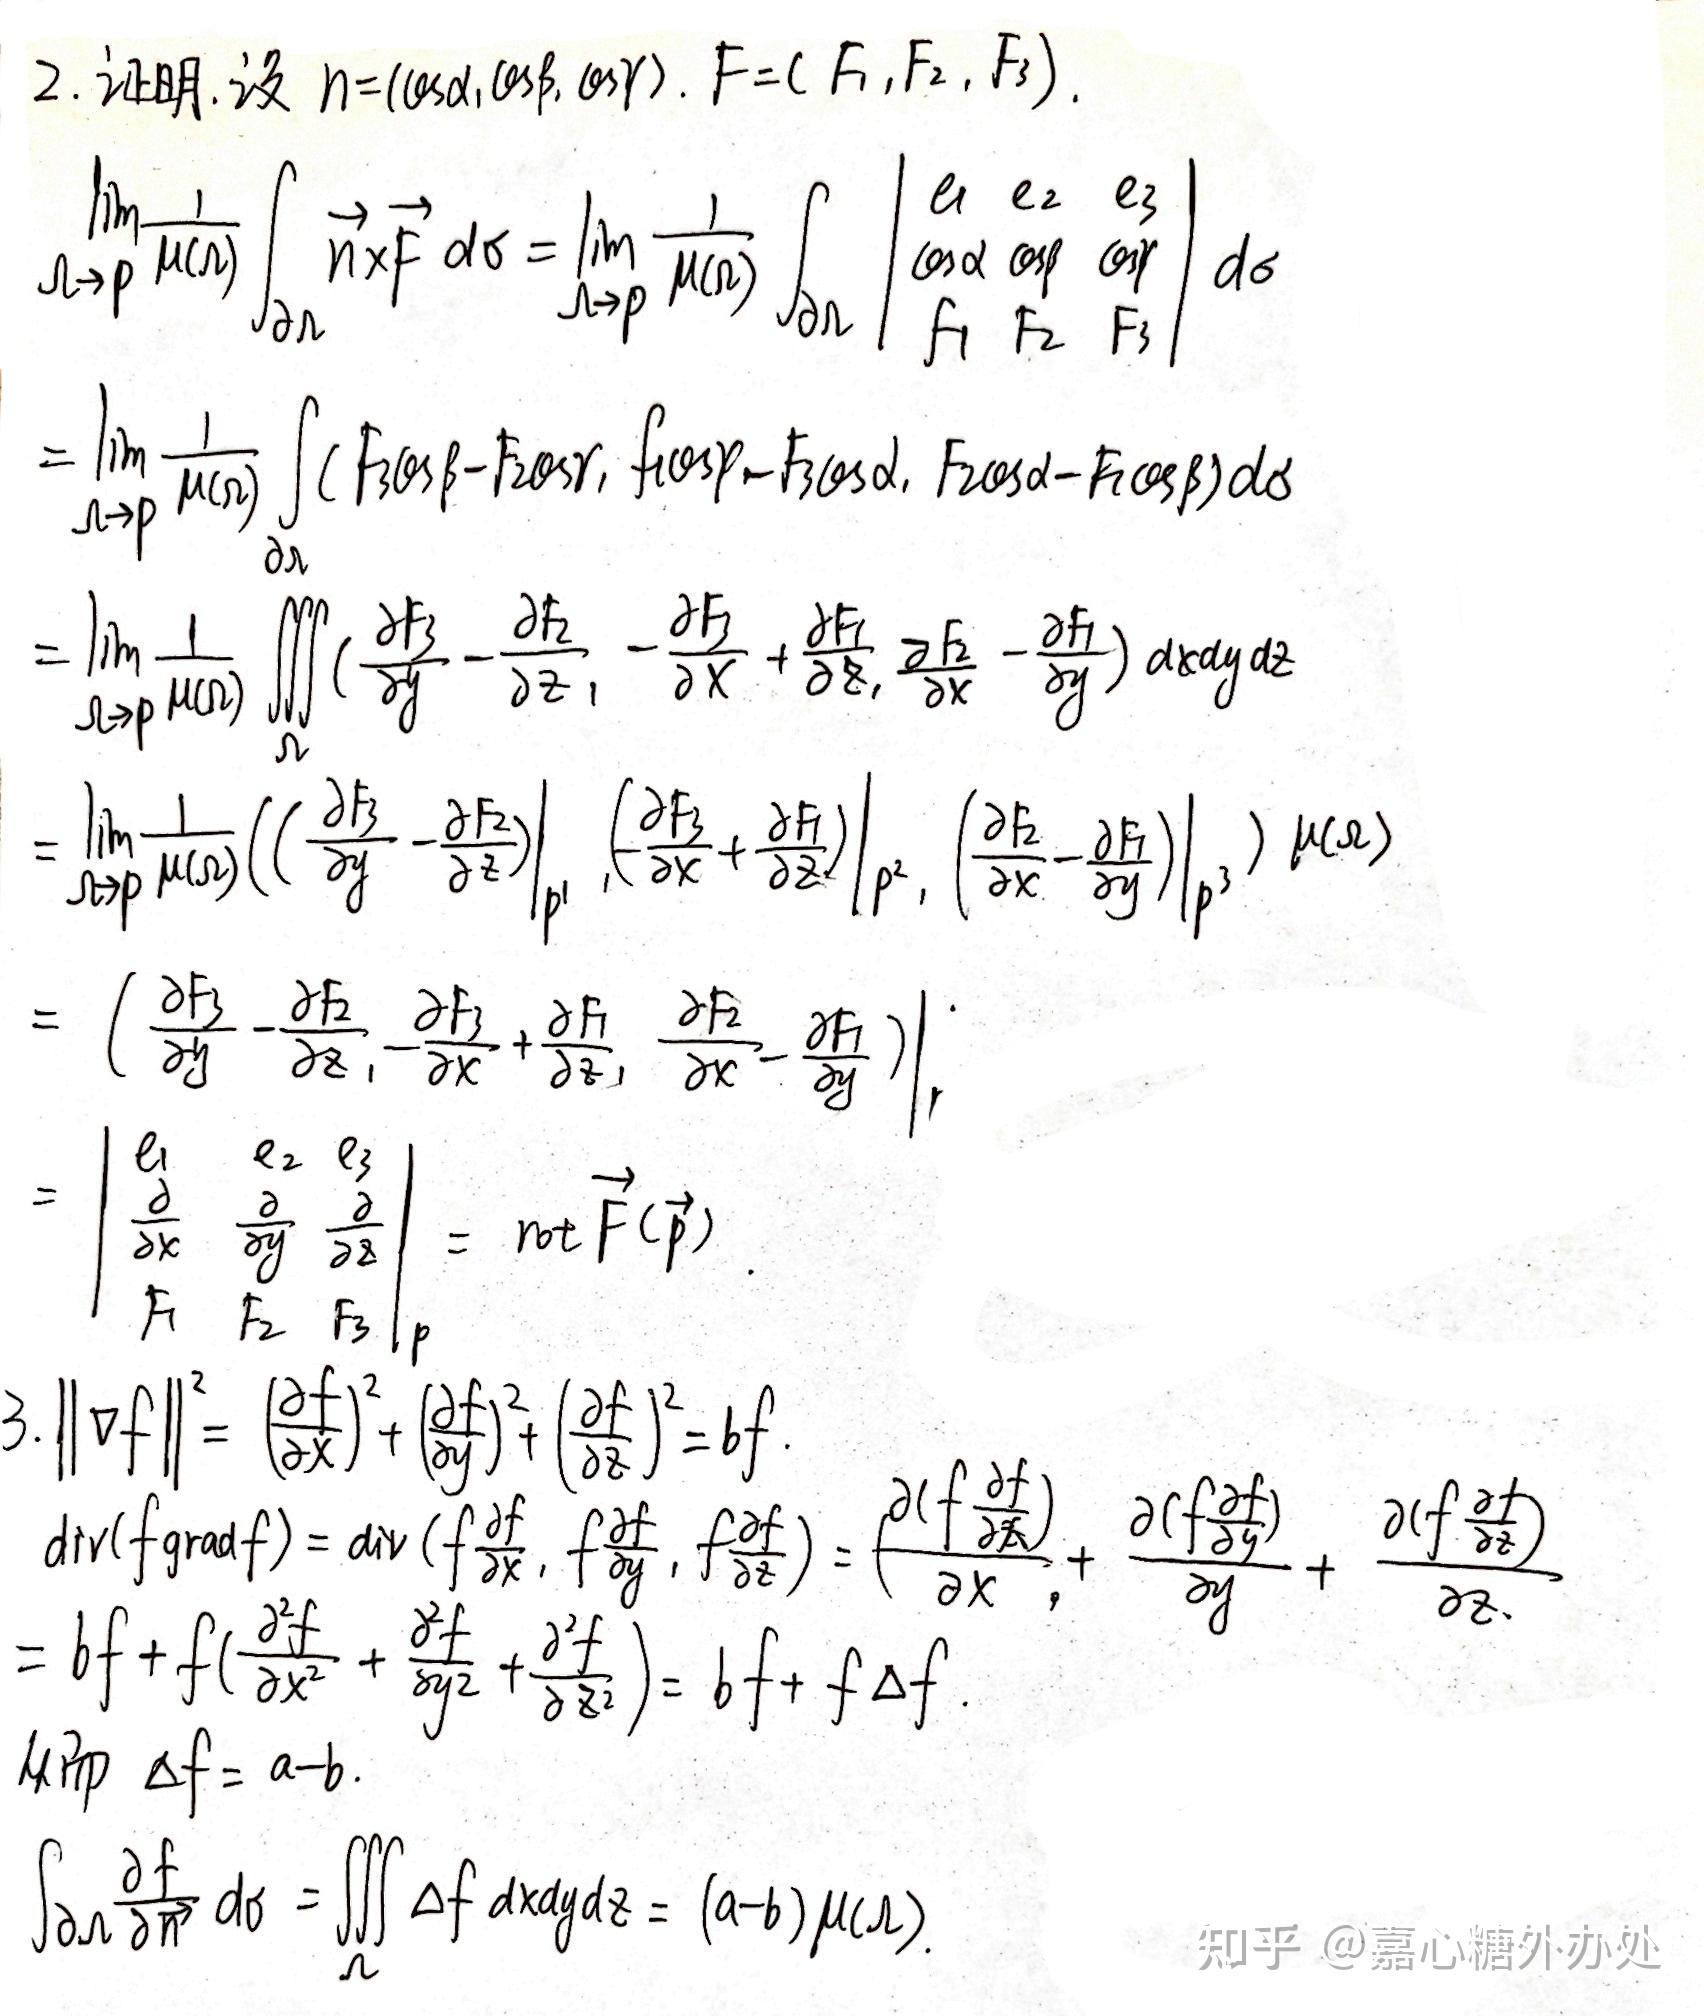 2. 证明. 设 n=(cosα, cosβ, cosγ). F=(F₁, F₂, F₃).
lim_{Ω→p} 1/μ(Ω) ∫_{∂Ω} n⃗×F⃗ dσ = lim_{Ω→p} 1/μ(Ω) ∫_{∂Ω} | e₁ e₂ e₃ ; cosα cosβ cosγ ; F₁ F₂ F₃ | dσ
= lim_{Ω→p} 1/μ(Ω) ∫_{∂Ω} (F₃cosβ−F₂cosγ, F₁cosγ−F₃cosα, F₂cosα−F₁cosβ) dσ
= lim_{Ω→p} 1/μ(Ω) ∭_Ω (∂F₃/∂y − ∂F₂/∂z, −∂F₃/∂x + ∂F₁/∂z, ∂F₂/∂x − ∂F₁/∂y) dxdydz
= lim_{Ω→p} 1/μ(Ω) ((∂F₃/∂y − ∂F₂/∂z)|_{p¹}, (−∂F₃/∂x + ∂F₁/∂z)|_{p²}, (∂F₂/∂x − ∂F₁/∂y)|_{p³}) μ(Ω)
= (∂F₃/∂y − ∂F₂/∂z, −∂F₃/∂x + ∂F₁/∂z, ∂F₂/∂x − ∂F₁/∂y)|
= | e₁ e₂ e₃ ; ∂/∂x ∂/∂y ∂/∂z ; F₁ F₂ F₃ |_p = rot F⃗(p⃗).
3. ‖∇f‖² = (∂f/∂x)² + (∂f/∂y)² + (∂f/∂z)² = bf.
div(f gradf) = div(f ∂f/∂x, f ∂f/∂y, f ∂f/∂z) = ∂(f ∂f/∂x)/∂x + ∂(f ∂f/∂y)/∂y + ∂(f ∂f/∂z)/∂z.
= bf + f(∂²f/∂x² + ∂²f/∂y² + ∂²f/∂z²) = bf + fΔf.
Δf = a−b.
∫_{∂Ω} ∂f/∂n⃗ dσ = ∭_Ω Δf dxdydz = (a−b)μ(Ω).
知乎 @嘉心糖外办处